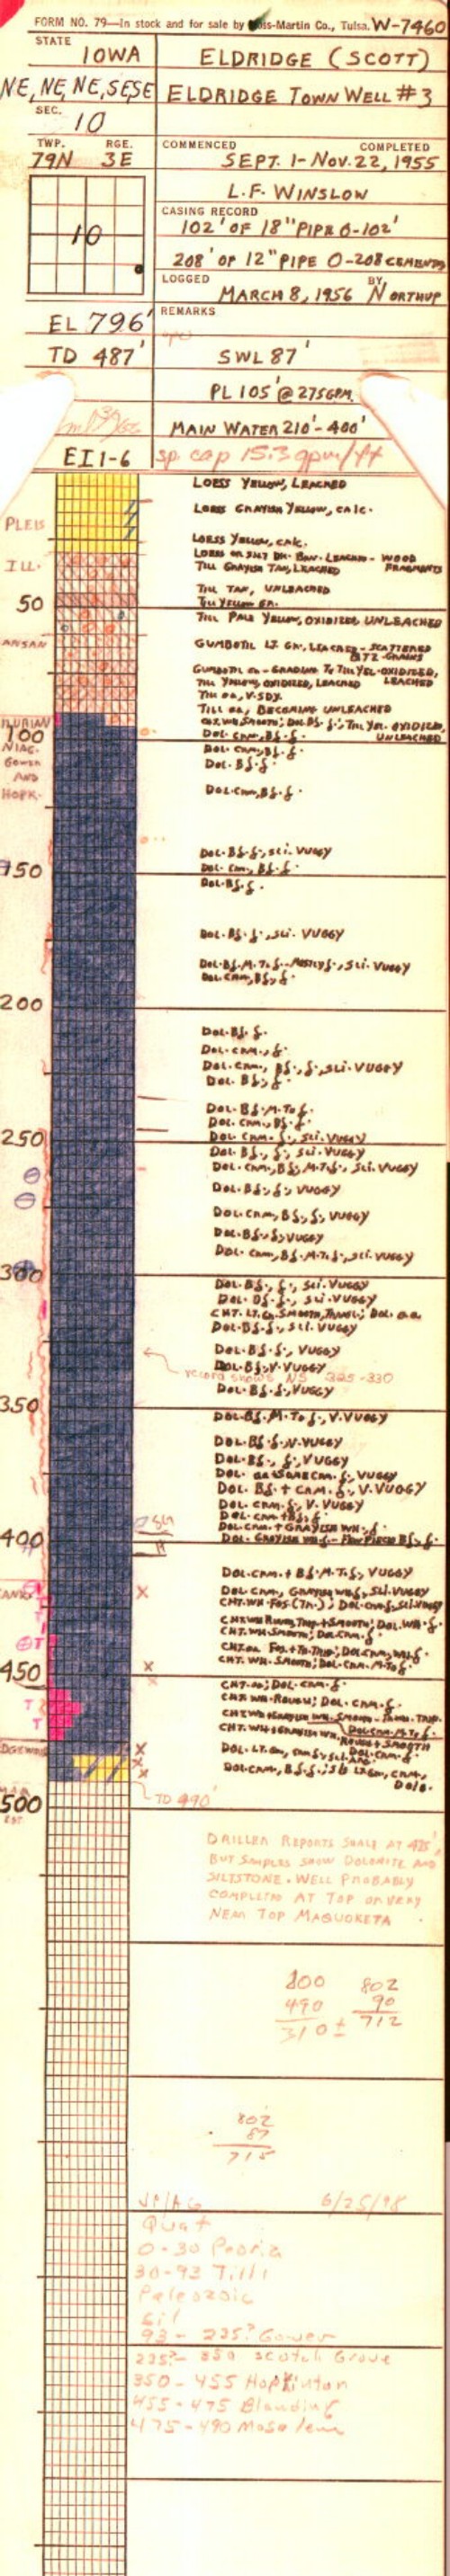 FORM NO. 79—In stock and for sale by Ross-Martin Co., Tulsa. W-7460
STATE
IOWA
ELDRIDGE (SCOTT)
NE, NE, NE, SE SE
ELDRIDGE TOWN WELL #3
SEC.
10
TWP. RGE.
79N 3E
COMMENCED COMPLETED
SEPT. 1-NOV. 22, 1955
L.F. WINSLOW
CASING RECORD
102' OF 18" PIPE 0-102'
208' OF 12" PIPE 0-208 CEMENTED
10
LOGGED BY
MARCH 8, 1956 NORTHUP
EL 796'
REMARKS
TD 487'
SWL 87'
PL 105' @ 275 GPM.
MAIN WATER 210'-400'
EI 1-6
sp. cap 15.3 gpm/ft
LOESS YELLOW, LEACHED
LOESS GRAYISH YELLOW, CALC.
PLEIS
LOESS YELLOW, CALC.
LOESS OR SILT DK. BRN. LEACHED - WOOD FRAGMENTS
ILL.
TILL GRAYISH TAN, LEACHED
TILL TAN, UNLEACHED
50
TILL YELLOW GR.
TILL PALE YELLOW, OXIDIZED UNLEACHED
ANSAN
GUMBOTIL LT. GR., LEACHED - SCATTERED QTZ-GRAINS
GUMBOTIL aa - GRADING TO TILL YEL-OXIDIZED, LEACHED
TILL YELLOW, OXIDIZED, LEACHED
TILL aa, V. SDY.
TILL aa, BECOMING UNLEACHED
100
DOL. CRM, BF. f.
NIAG.
GOWER
AND
HOPK.
DOL. CRM, BF. f.
DOL. BF. f.
DOL. CRM, BF. f.
150
DOL. BF. f., SLI. VUGGY
DOL. CRM, BF. f.
DOL. BF. f.
DOL. BF. f., SLI. VUGGY
DOL. BF. M. TO f. - MOSTLY f., SLI. VUGGY
DOL. CRM, BF. f.
200
DOL. BF. f.
DOL. CRM., f.
DOL. CRM, BF., f., SLI. VUGGY
DOL. BF. f.
DOL. BF. M. TO f.
DOL. CRM, BF. f.
250
DOL. CRM. f., SLI. VUGGY
DOL. BF., f., SLI. VUGGY
DOL. CRM, BF., M. TO f., SLI. VUGGY
DOL. BF., f., VUGGY
DOL. CRM, BF., f., VUGGY
DOL. BF. f., VUGGY
DOL. CRM, BF. M. TO f., SLI. VUGGY
300
DOL. BF., f., SLI. VUGGY
DOL. BF. f., SLI. VUGGY
CHT. LT. GR. SMOOTH, TRANSL.; DOL. aa
DOL. BF. f., SLI. VUGGY
DOL. BF. f., VUGGY
DOL. BF. V. VUGGY
record shows NS 325-330
DOL. BF. f., VUGGY
350
DOL. BF. M. TO f., V. VUGGY
DOL. BF. f., V. VUGGY
DOL. BF., f., VUGGY
DOL. aa + SOME CRM. f., VUGGY
DOL. BF. + CRM. f., V. VUGGY
DOL. CRM. f., V. VUGGY
DOL. CRM + BF. f.
DOL. CRM. + GRAYISH WH. f.
400
DOL. GRAYISH WH. f. - FEW PIECES BF. f.
DOL. CRM. + BF. M. TO f., VUGGY
DOL. CRM, GRAYISH WH. f., SLI. VUGGY
CHT. WH. FOS. (TR.); DOL. CRM. f., SLI. VUGGY
CHT. WH. ROUGH, TRIP. + SMOOTH; DOL. WH. f.
CHT. WH. SMOOTH; DOL. CRM. f.
CHT. aa FOS. + TR. TRIP; DOL. CRM, WH. f.
CHT. WH. SMOOTH; DOL. CRM. M. TO f.
450
CHT. aa; DOL. CRM. f.
CHT. WH. ROUGH; DOL. CRM. f.
DOL. CRM. M. TO f.
ROUGH + SMOOTH
DOL. CRM. f.
DOL. CRM, BF. f.
TD 490'
500
DRILLER REPORTS SHALE AT 475'
BUT SAMPLES SHOW DOLOMITE AND
SILTSTONE. WELL PROBABLY
COMPLETED AT TOP OR VERY
NEAR TOP MAQUOKETA.
800 802
490 90
310 ± 712
802
87
715
6/25/98
Quat
0-30 Peoria
30-93 Till
Paleozoic
Sil
93 - 225? Gower
225? - 350 Scotch Grove
350 - 455 Hopkinton
455 - 475 Blanding
475 - 490 Mosalem